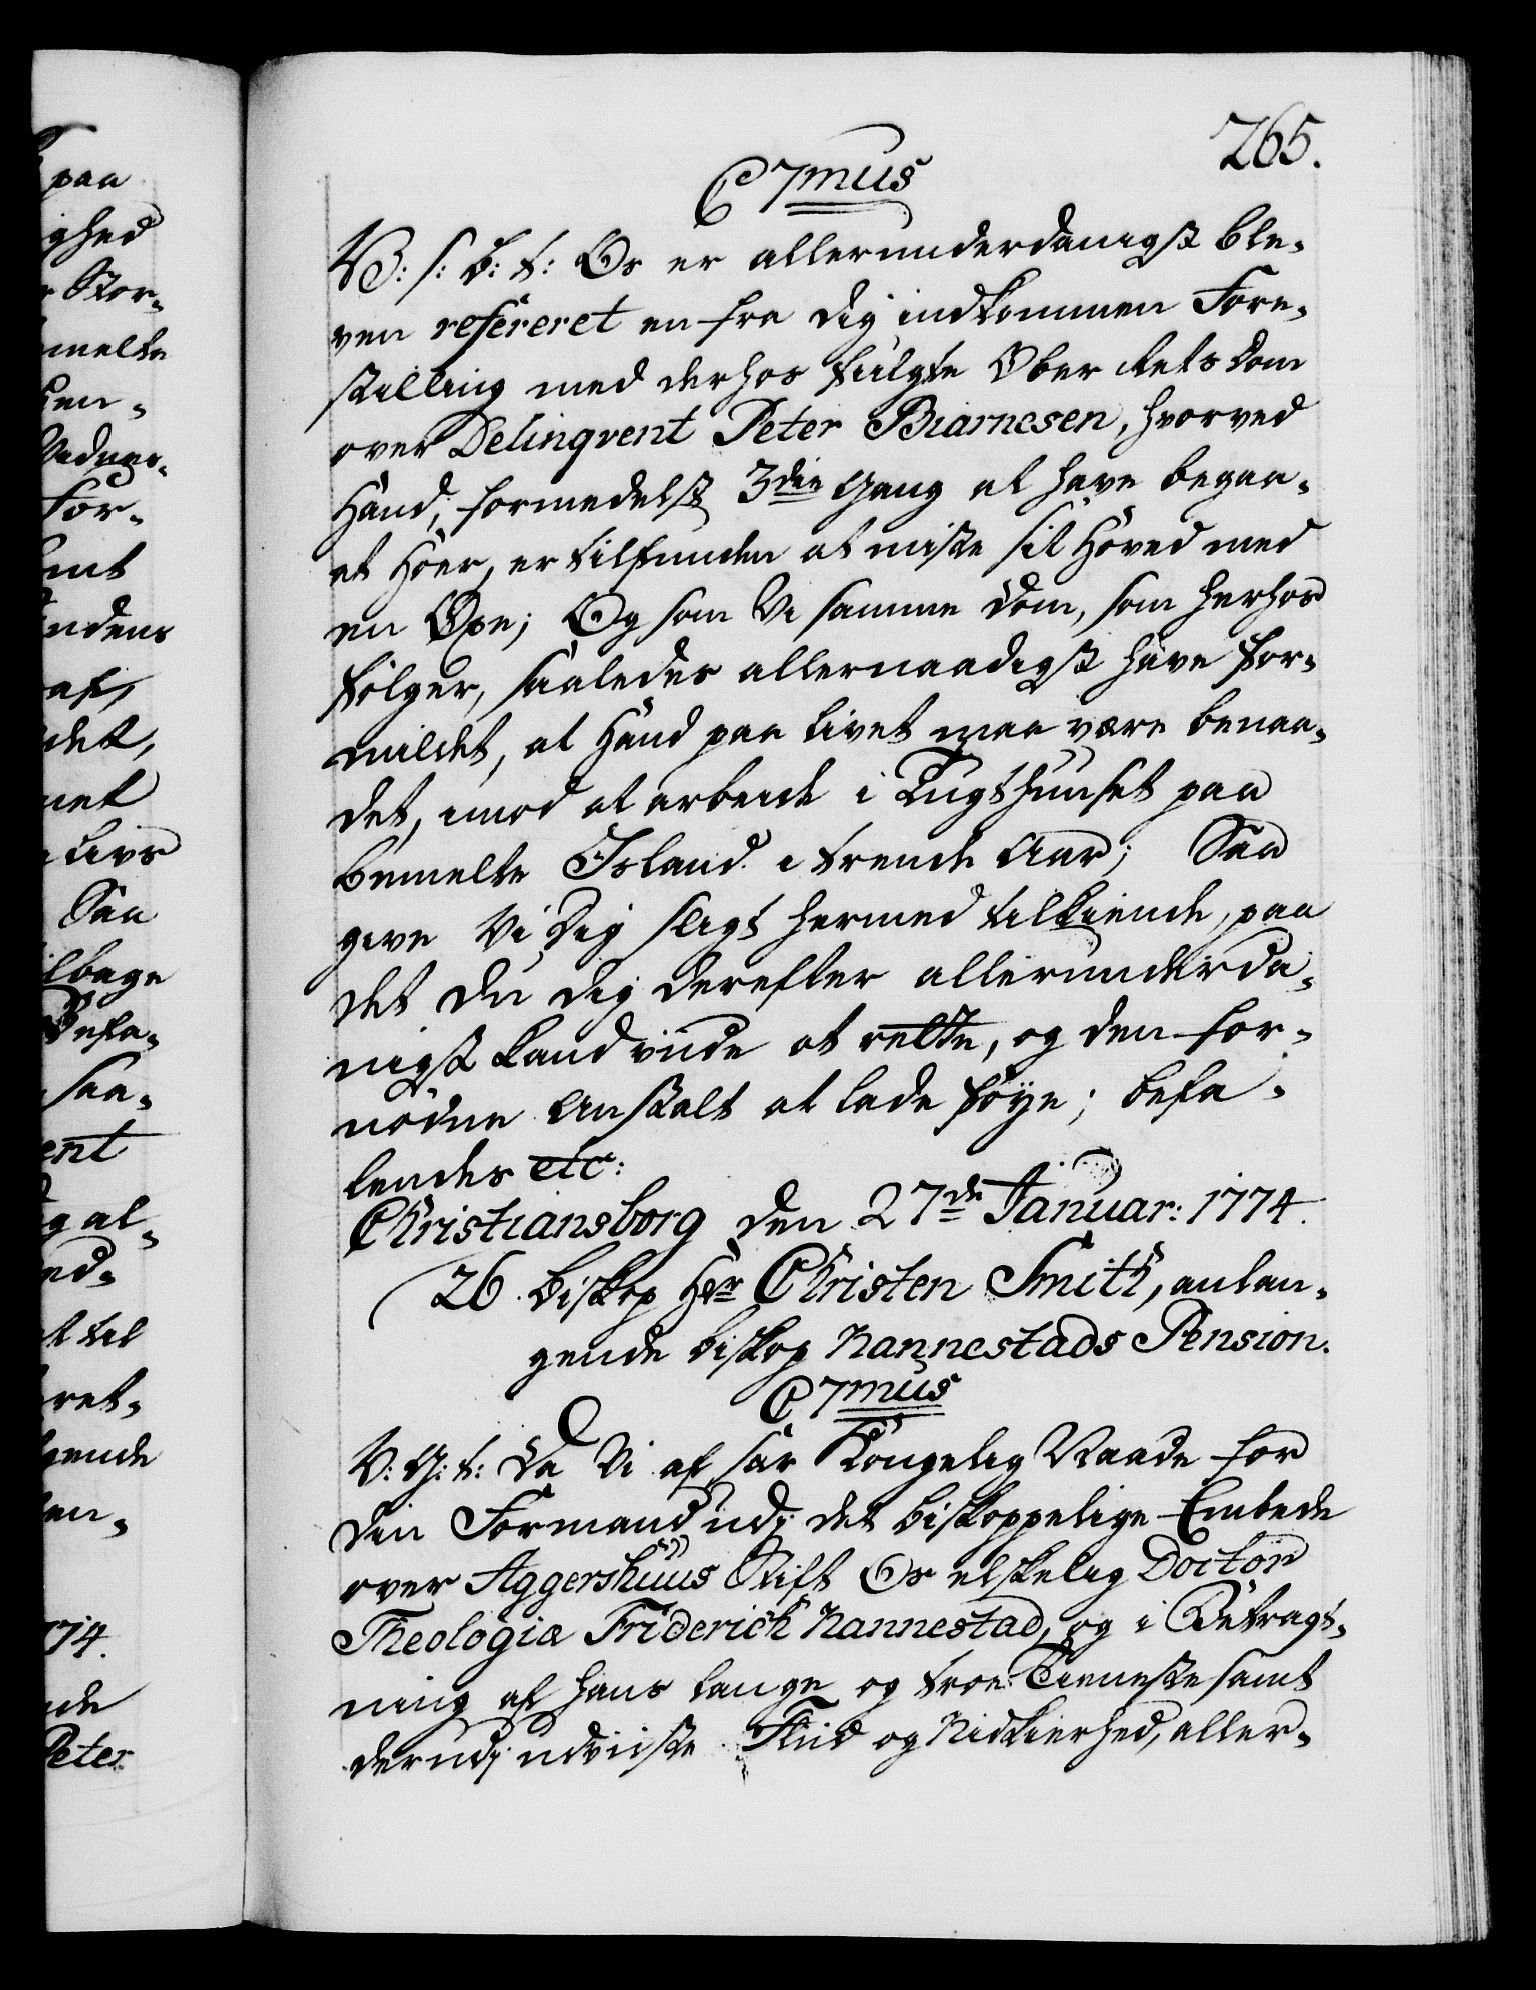 265.
C7mus
V: s: b: t: Os er allerunderdanigst ble-
ven refereret en fra dig indkommen Fore-
stilling med derhos fulgte Ober Rets Dom
over Delinqvent Peter Biarnesen, hvorved
Hand, formedelst 3die Gang at have begaa-
et Hoer, er tilfunden at miste sit Hoved med
en Öxe; Og som Vi samme Dom, som herhos
fölger, saaledes allernaadigst have for-
mildet, at Hand paa Livet maa være benaa-
det, imod at arbeide i Tugthuuset paa
bemelte Island i trende Aar; Saa
give Vi Dig sligt hermed tilkiende, paa
det du dig derefter allerunderda-
nigst kand vide at rette, og den for-
nödne Anstalt at lade föye; befa-
lendes etc:
Christiansborg den 27de Januar: 1774.
26. Biskop Hr Christen Smith, anlan-
gende Biskop Nannestads Pension.
C7mus
V: G: t: Da Vi af sær Kongelig Naade for
din Formand udj det biskoppelige Embede
over Aggershuus Stift Os elskelig Doctor
Theologiæ Friderich Nannestad, og i Betragt-
ning af hans lange og troe Tieneste samt
derudj udviiste Fliid og Nidkierhed, aller-
paa
ghed
Stor-
melte
ken-
Vidner-
For-
ent
ndens
af,
det,
net
Livs
Saa
ilbage
Befa-
saa-
ent
g al-
ed-
t til
ret-
gende
len-
774.
de
Peter